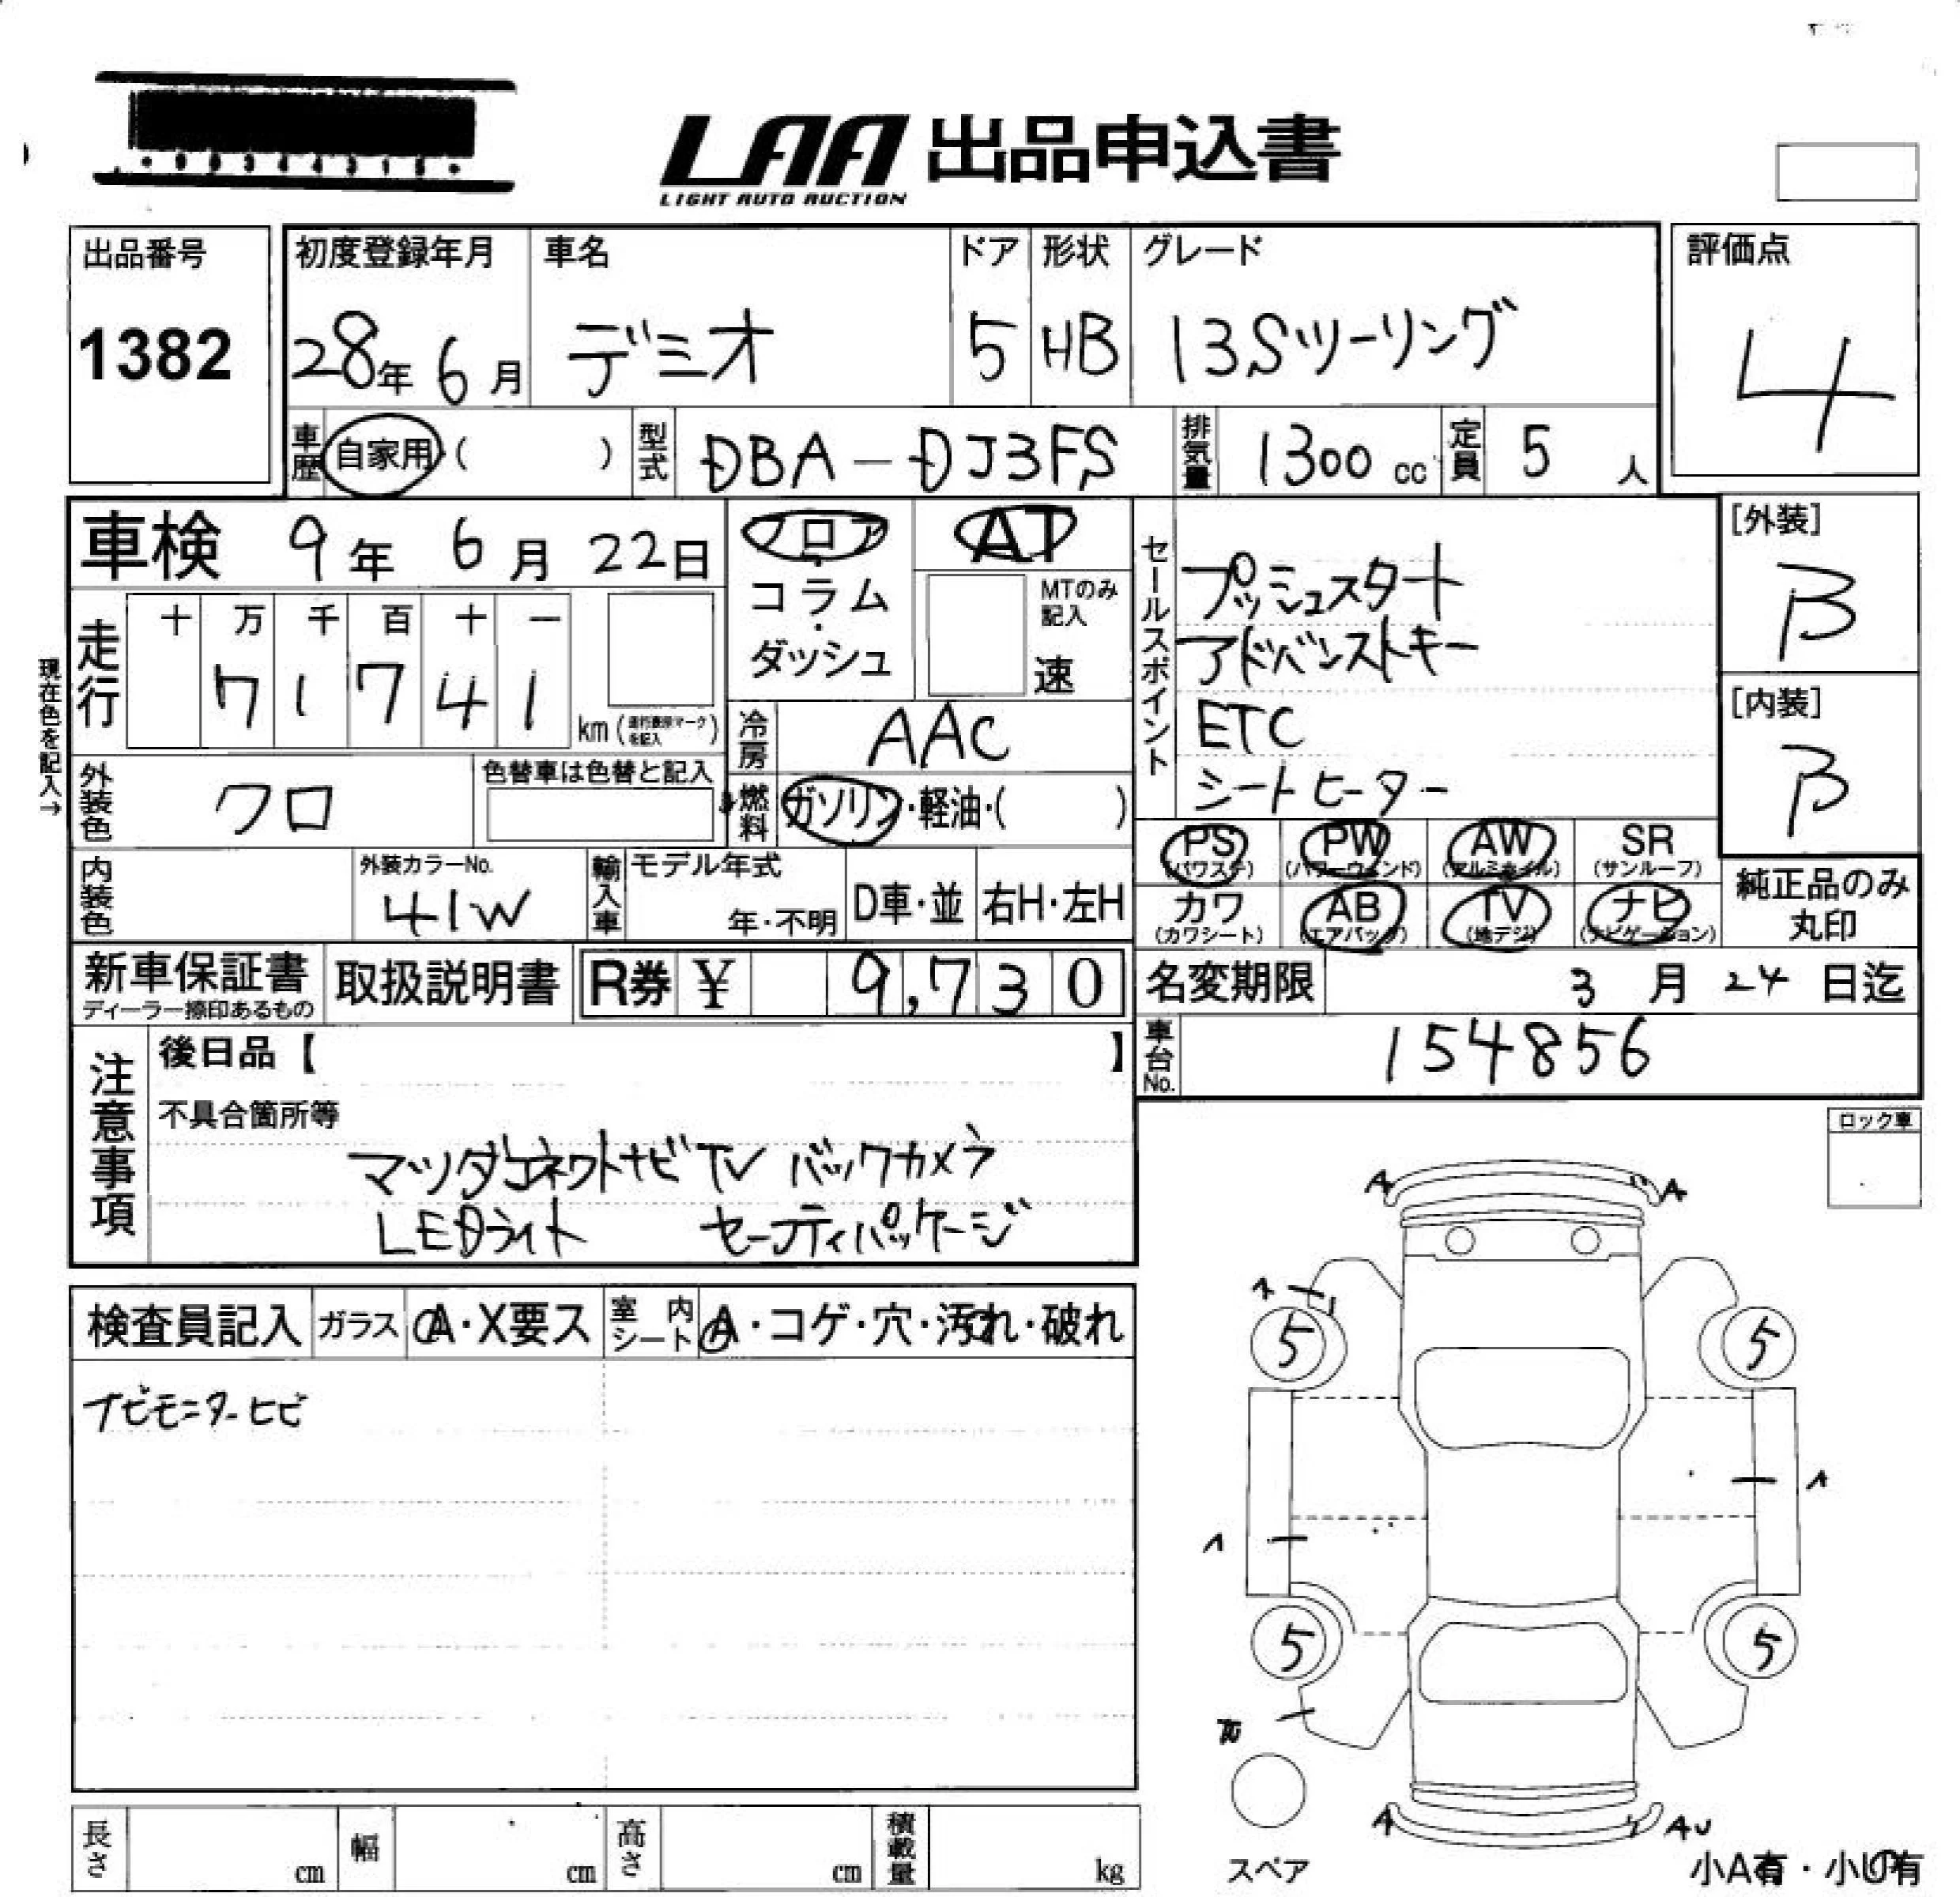 LAA 出品申込書
LIGHT AUTO AUCTION
出品番号
1382
初度登録年月
28年 6月
車名
デミオ
ドア
5
形状
HB
グレード
13Sツーリング
評価点
4
車歴
自家用・( )
型式
DBA-DJ3FS
排気量
1300 cc
定員
5 人
車検 9年 6月 22日
フロア・コラム・ダッシュ
AT
MTのみ記入
速
現在色を記入→
走行
十 万 千 百 十 一
7 1 7 4 1
km(走行表示マークを記入)
冷房
AAC
外装色
クロ
色替車は色替と記入
燃料
ガソリン・軽油・( )
内装色
外装カラーNo.
41W
輸入車
モデル年式
年・不明
D車・並
右H・左H
セールスポイント
プッシュスタート
アドバンストキー
ETC
シートヒーター
[外装]
B
[内装]
B
PS (パワステ)
PW (パワーウィンド)
AW (アルミホイル)
SR (サンルーフ)
カワ (カワシート)
AB (エアバッグ)
TV (地デジ)
ナビ (ナビゲーション)
純正品のみ
丸印
新車保証書
ディーラー捺印あるもの
取扱説明書
R券 ¥ 9,730
名変期限 3月 24日迄
車台No.
154856
注意事項
後日品【 】
不具合箇所等
マツダコネクトナビTV バックカメラ
LEDライト セーフティパッケージ
ロック車
検査員記入
ガラス
A・X要ス
室内シート
A・コゲ・穴・汚れ・破れ
ナビモニターヒビ
A A
5 5
A
5 5
A AU
スペア
小A有・小U有
長さ cm
幅 cm
高さ cm
積載量 kg